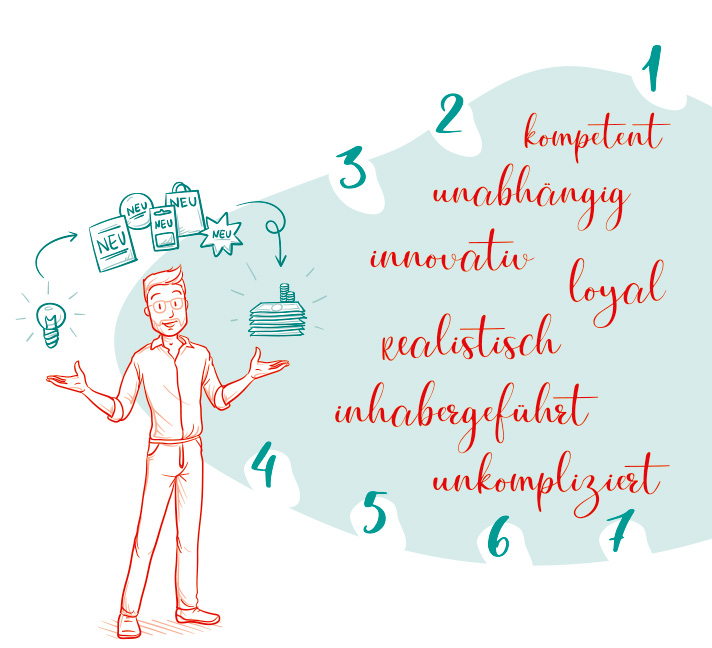 1
2
3
kompetent
unabhängig
innovativ
loyal
realistisch
inhabergeführt
unkompliziert
NEU
NEU
NEU
NEU
NEU
4
5
6
7